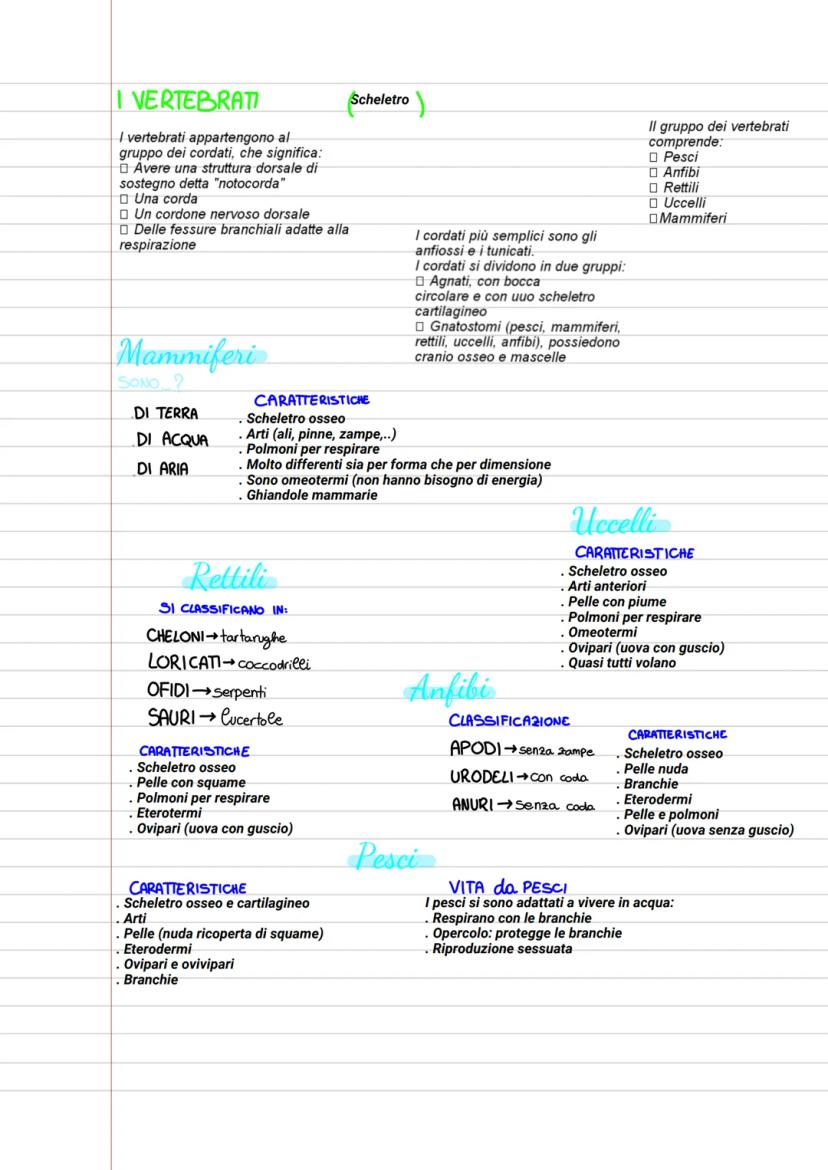 I VERTEBRATI (Scheletro)
I vertebrati appartengono al
gruppo dei cordati, che significa:
□ Avere una struttura dorsale di
sostegno detta "notocorda"
□ Una corda
□ Un cordone nervoso dorsale
□ Delle fessure branchiali adatte alla
respirazione
Il gruppo dei vertebrati
comprende:
□ Pesci
□ Anfibi
□ Rettili
□ Uccelli
□ Mammiferi
I cordati più semplici sono gli
anfiossi e i tunicati.
I cordati si dividono in due gruppi:
□ Agnati, con bocca
circolare e con uuo scheletro
cartilagineo
□ Gnatostomi (pesci, mammiferi,
rettili, uccelli, anfibi), possiedono
cranio osseo e mascelle
Mammiferi
SONO...?
. DI TERRA
. DI ACQUA
. DI ARIA
CARATTERISTICHE
. Scheletro osseo
. Arti (ali, pinne, zampe,..)
. Polmoni per respirare
. Molto differenti sia per forma che per dimensione
. Sono omeotermi (non hanno bisogno di energia)
. Ghiandole mammarie
Uccelli
CARATTERISTICHE
. Scheletro osseo
. Arti anteriori
. Pelle con piume
. Polmoni per respirare
. Omeotermi
. Ovipari (uova con guscio)
. Quasi tutti volano
Rettili
SI CLASSIFICANO IN:
CHELONI→tartarughe
LORICATI→coccodrilli
OFIDI→serpenti
SAURI→lucertole
CARATTERISTICHE
. Scheletro osseo
. Pelle con squame
. Polmoni per respirare
. Eterotermi
. Ovipari (uova con guscio)
Anfibi
CLASSIFICAZIONE
APODI→senza zampe
URODELI→con coda
ANURI→senza coda
CARATTERISTICHE
. Scheletro osseo
. Pelle nuda
. Branchie
. Eterodermi
. Pelle e polmoni
. Ovipari (uova senza guscio)
Pesci
CARATTERISTICHE
. Scheletro osseo e cartilagineo
. Arti
. Pelle (nuda ricoperta di squame)
. Eterodermi
. Ovipari e ovivipari
. Branchie
VITA da PESCI
I pesci si sono adattati a vivere in acqua:
. Respirano con le branchie
. Opercolo: protegge le branchie
. Riproduzione sessuata